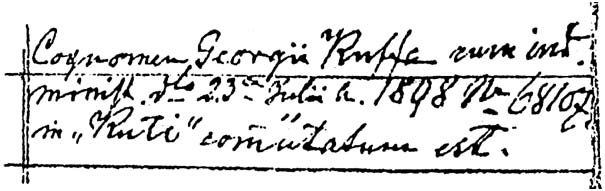 Cognomen Georgii Kuffa cum int.
minist. dto 23ae Julii a. 1898 No 68107
in „Kuti" comutatum est.